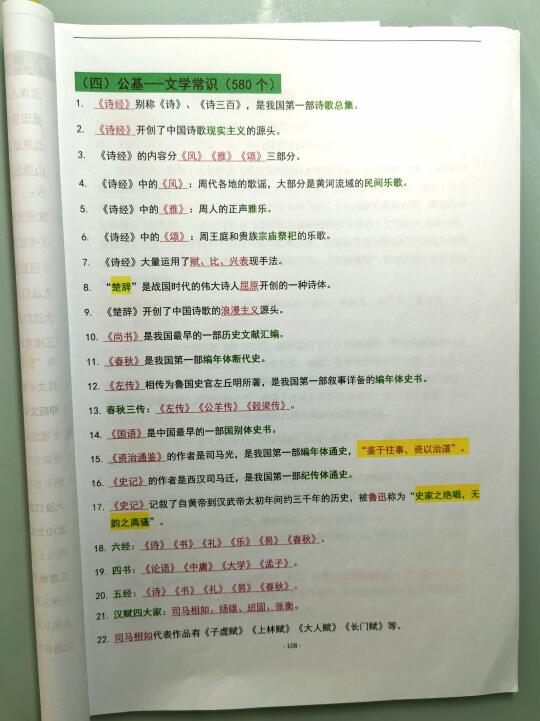 （四）公基---文学常识（580 个）
1. 《诗经》别称《诗》、《诗三百》，是我国第一部诗歌总集。
2. 《诗经》开创了中国诗歌现实主义的源头。
3. 《诗经》的内容分《风》《雅》《颂》三部分。
4. 《诗经》中的《风》：周代各地的歌谣，大部分是黄河流域的民间乐歌。
5. 《诗经》中的《雅》：周人的正声雅乐。
6. 《诗经》中的《颂》：周王庭和贵族宗庙祭祀的乐歌。
7. 《诗经》大量运用了赋、比、兴表现手法。
8. “楚辞”是战国时代的伟大诗人屈原开创的一种诗体。
9. 《楚辞》开创了中国诗歌的浪漫主义源头。
10. 《尚书》是我国最早的一部历史文献汇编。
11. 《春秋》是我国第一部编年体断代史。
12. 《左传》相传为鲁国史官左丘明所著，是我国第一部叙事详备的编年体史书。
13. 春秋三传：《左传》《公羊传》《穀梁传》。
14. 《国语》是中国最早的一部国别体史书。
15. 《资治通鉴》的作者是司马光，是我国第一部编年体通史，“鉴于往事，资以治道”。
16. 《史记》的作者是西汉司马迁，是我国第一部纪传体通史。
17. 《史记》记叙了自黄帝到汉武帝太初年间约三千年的历史，被鲁迅称为“史家之绝唱，无
韵之离骚”。
18. 六经：《诗》《书》《礼》《乐》《易》《春秋》。
19. 四书：《论语》《中庸》《大学》《孟子》。
20. 五经：《诗》《书》《礼》《易》《春秋》。
21. 汉赋四大家：司马相如、扬雄、班固、张衡。
22. 司马相如代表作品有《子虚赋》《上林赋》《大人赋》《长门赋》等。
- 108 -